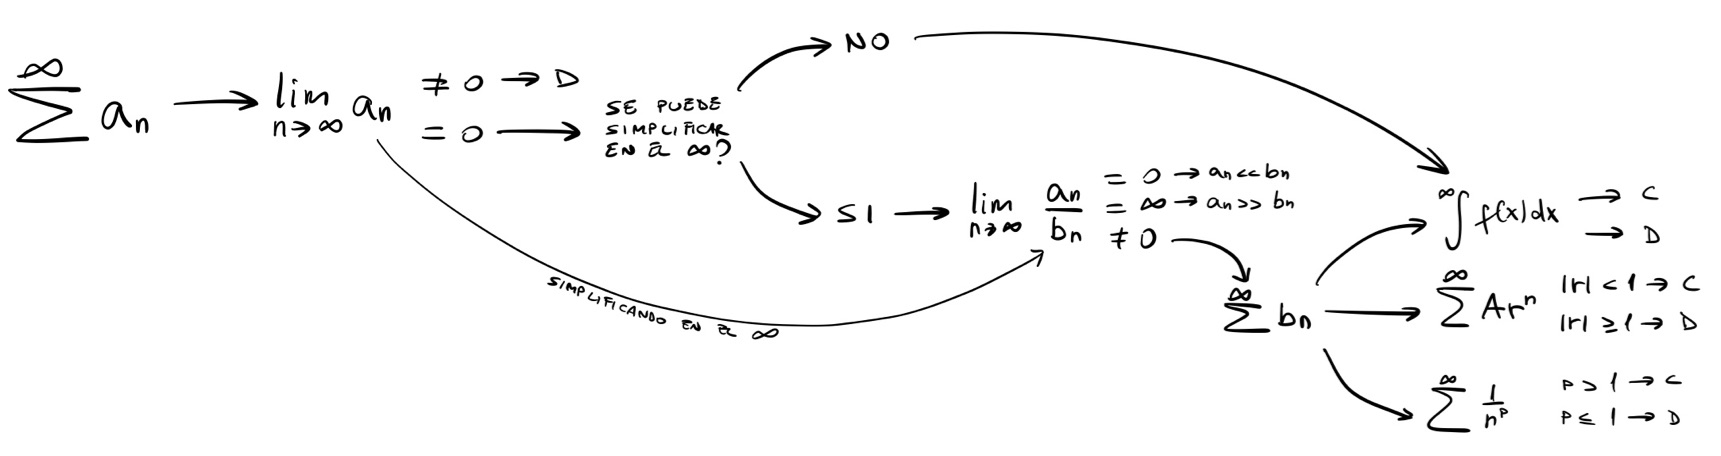 ∞
∑ aₙ → lim aₙ
n→∞
≠ 0 → D
= 0 →
SE PUEDE
SIMPLIFICAR
EN EL ∞?
NO
SI → lim aₙ/bₙ
n→∞
= 0 → aₙ << bₙ
= ∞ → aₙ >> bₙ
≠ 0
SIMPLIFICANDO EN EL ∞
∞
∑ bₙ
∞
∫ f(x)dx → C
→ D
∞
∑ Arⁿ |r| < 1 → C
|r| ≥ 1 → D
∞
∑ 1/nᵖ P > 1 → C
P ≤ 1 → D